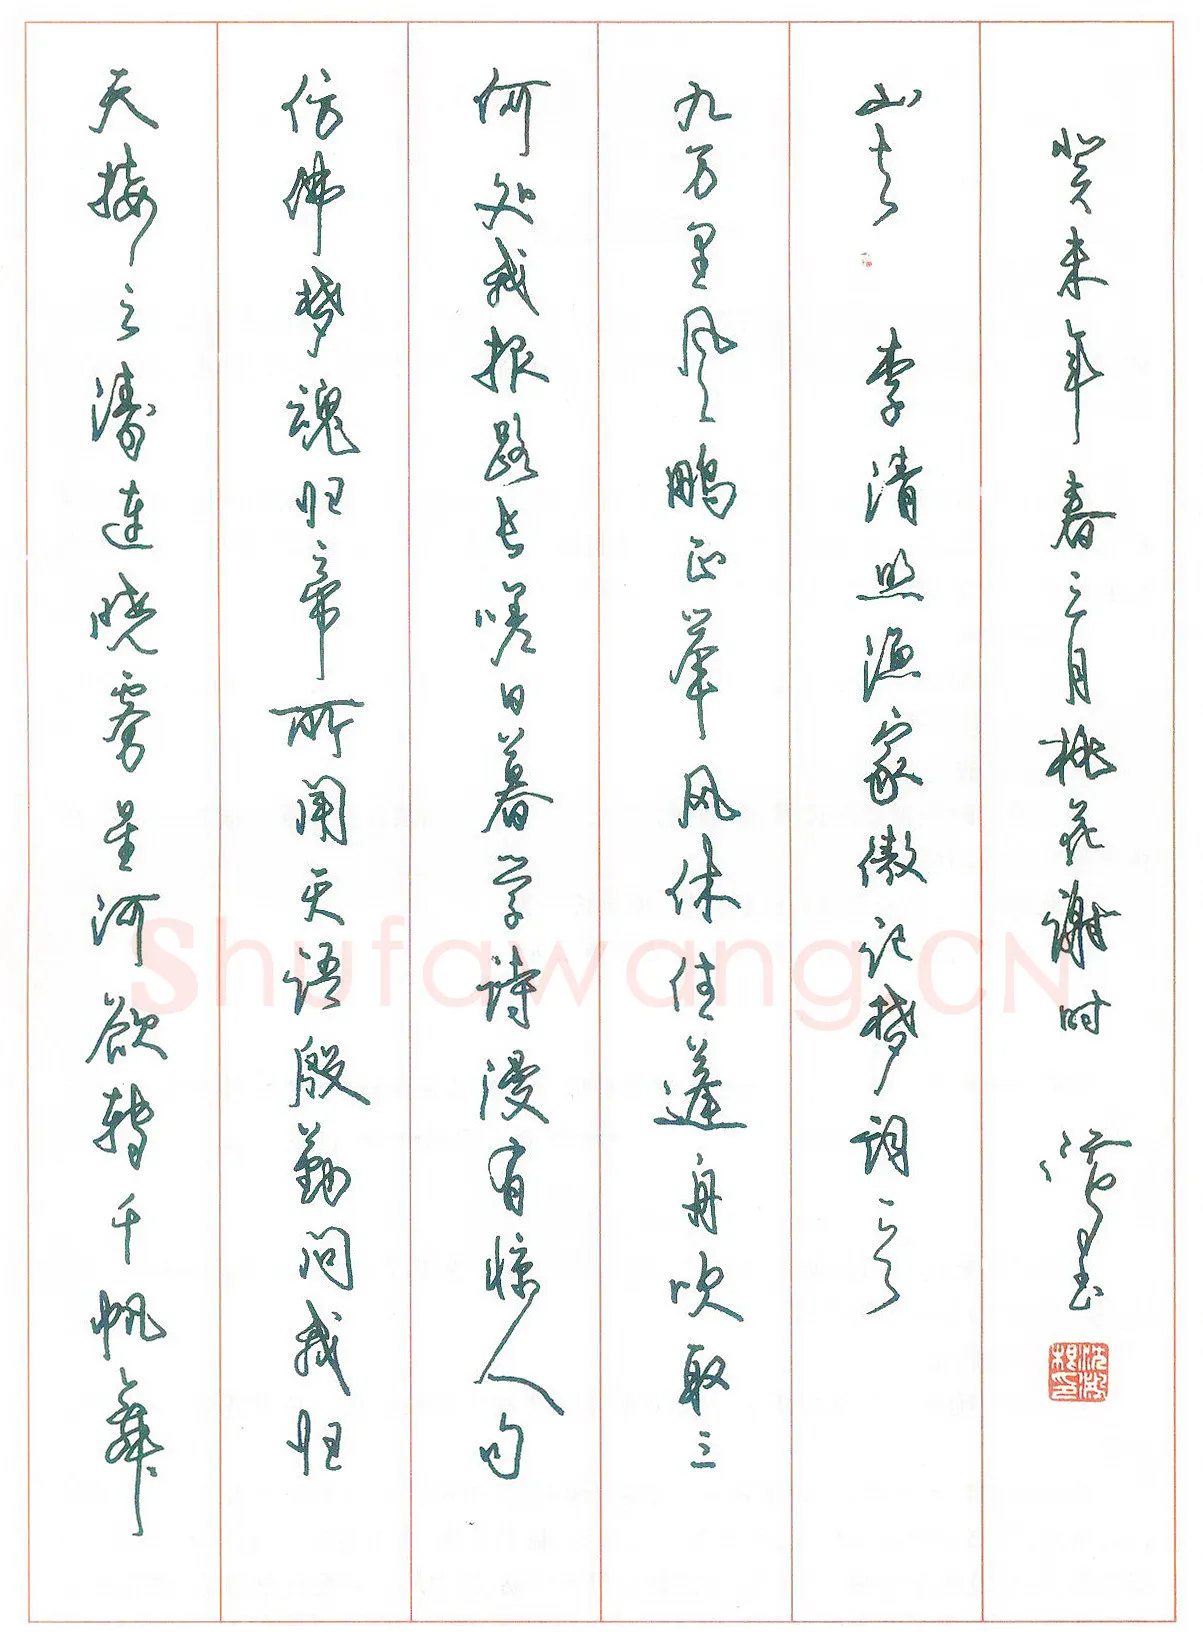 天接云涛连晓雾星河欲转千帆舞
仿佛梦魂归帝所闻天语殷勤问我归
何处我报路长嗟日暮学诗漫有惊人句
九万里风鹏正举风休住蓬舟吹取三
山去 李清照渔家傲记梦词
癸未年春三月桃花谢时
沈鸿根印
Shufawang.CN